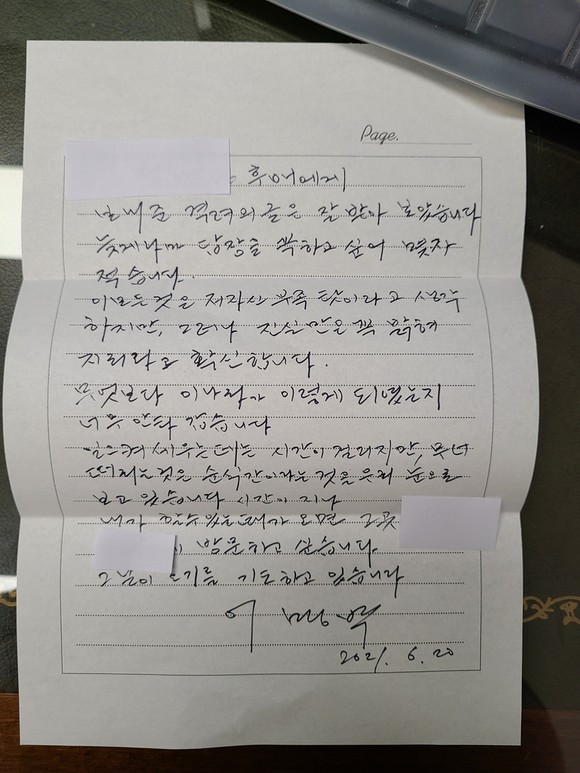 Page.
후배에게
보내준 격려의 글은 잘 받아 보았습니다
늦게나마 답장을 꼭 하고 싶어 몇자
적습니다.
이 모든것은 저자신 부족 탓이라고 생각
하지만, 그러나 진실만은 꼭 밝혀
지리라고 확신합니다.
무엇보다 이나라가 이렇게 되었는지
너무 안타 깝습니다
일으켜 세우는데는 시간이 걸리지만, 무너
떠리는것은 순식간이라는것을 우리 눈으로
보고 있습니다 시간이 지나
내가 갈수있는때가 오면 그곳
방문하고 싶습니다.
그날이 오기를 기도하고 있습니다
이명박
2021. 6. 20